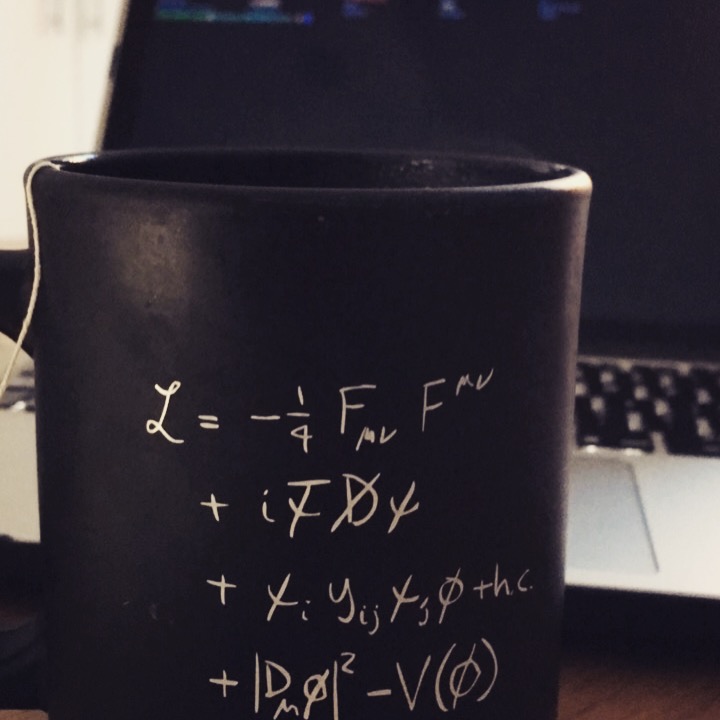 ℒ = -¼ F_μν F^μν
+ iψ̄D̸ψ
+ ψ_i y_ij ψ_j ϕ + h.c.
+ |D_μ ϕ|² - V(ϕ)